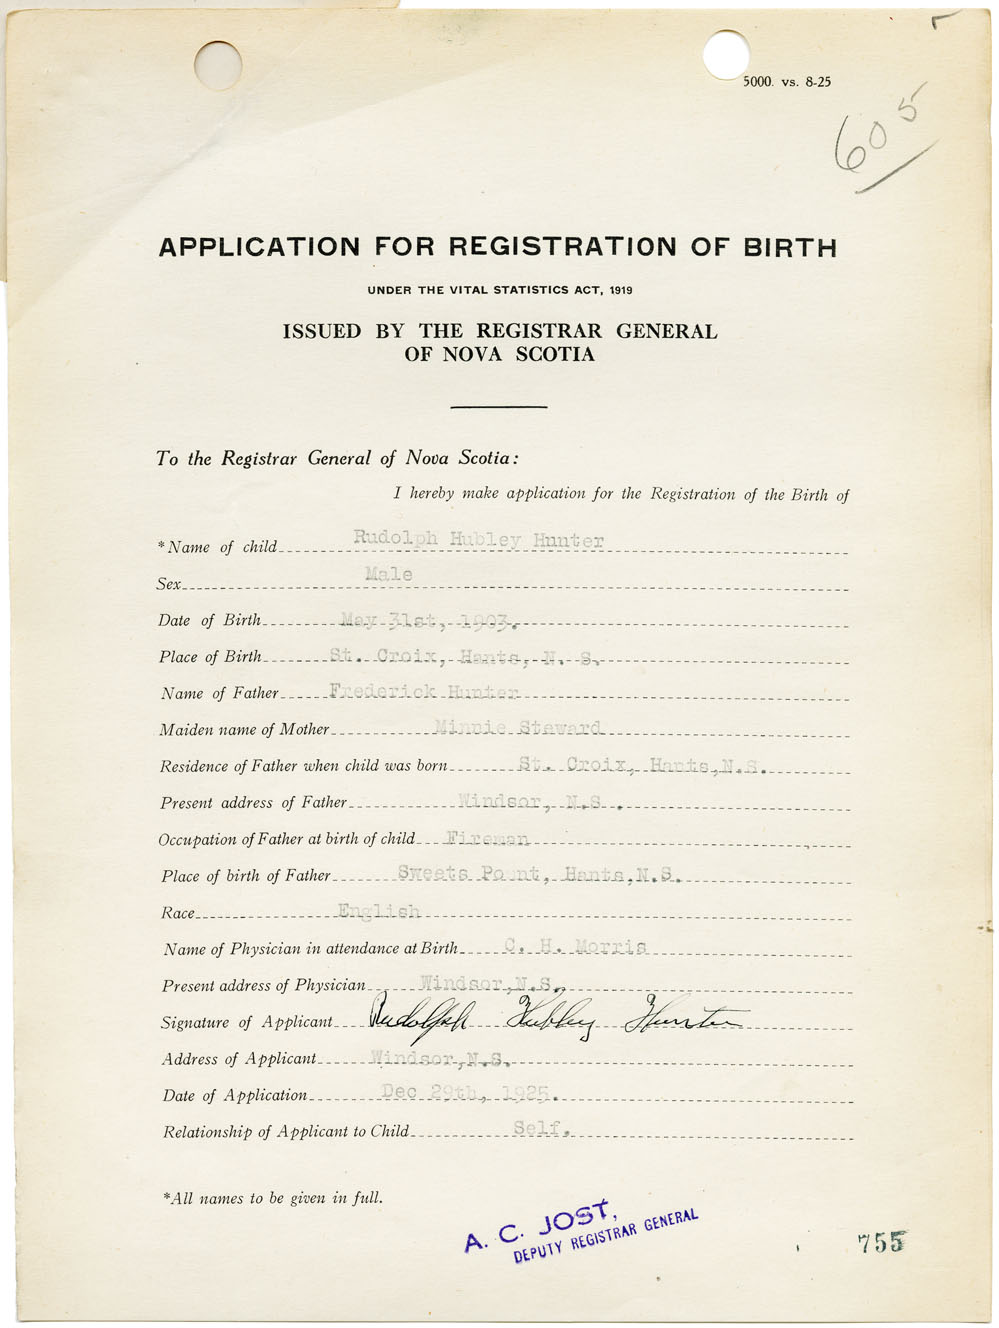 5000. vs. 8-25
605
APPLICATION FOR REGISTRATION OF BIRTH
UNDER THE VITAL STATISTICS ACT, 1919
ISSUED BY THE REGISTRAR GENERAL
OF NOVA SCOTIA
To the Registrar General of Nova Scotia:
I hereby make application for the Registration of the Birth of
*Name of child Rudolph Hubley Hunter
Sex Male
Date of Birth May 31st, 1903.
Place of Birth St. Croix, Hants, N. S.
Name of Father Frederick Hunter
Maiden name of Mother Minnie Steward
Residence of Father when child was born St. Croix, Hants,N.S.
Present address of Father Windsor, N.S .
Occupation of Father at birth of child Fireman
Place of birth of Father Sweets Po nt, Hants,N.S.
Race English
Name of Physician in attendance at Birth C. H. Morris
Present address of Physician Windsor,N.S.
Signature of Applicant Rudolph Hubley Hunter
Address of Applicant Windsor,N.S.
Date of Application Dec 29th, 1925.
Relationship of Applicant to Child Self.
*All names to be given in full.
A. C. JOST,
DEPUTY REGISTRAR GENERAL
755